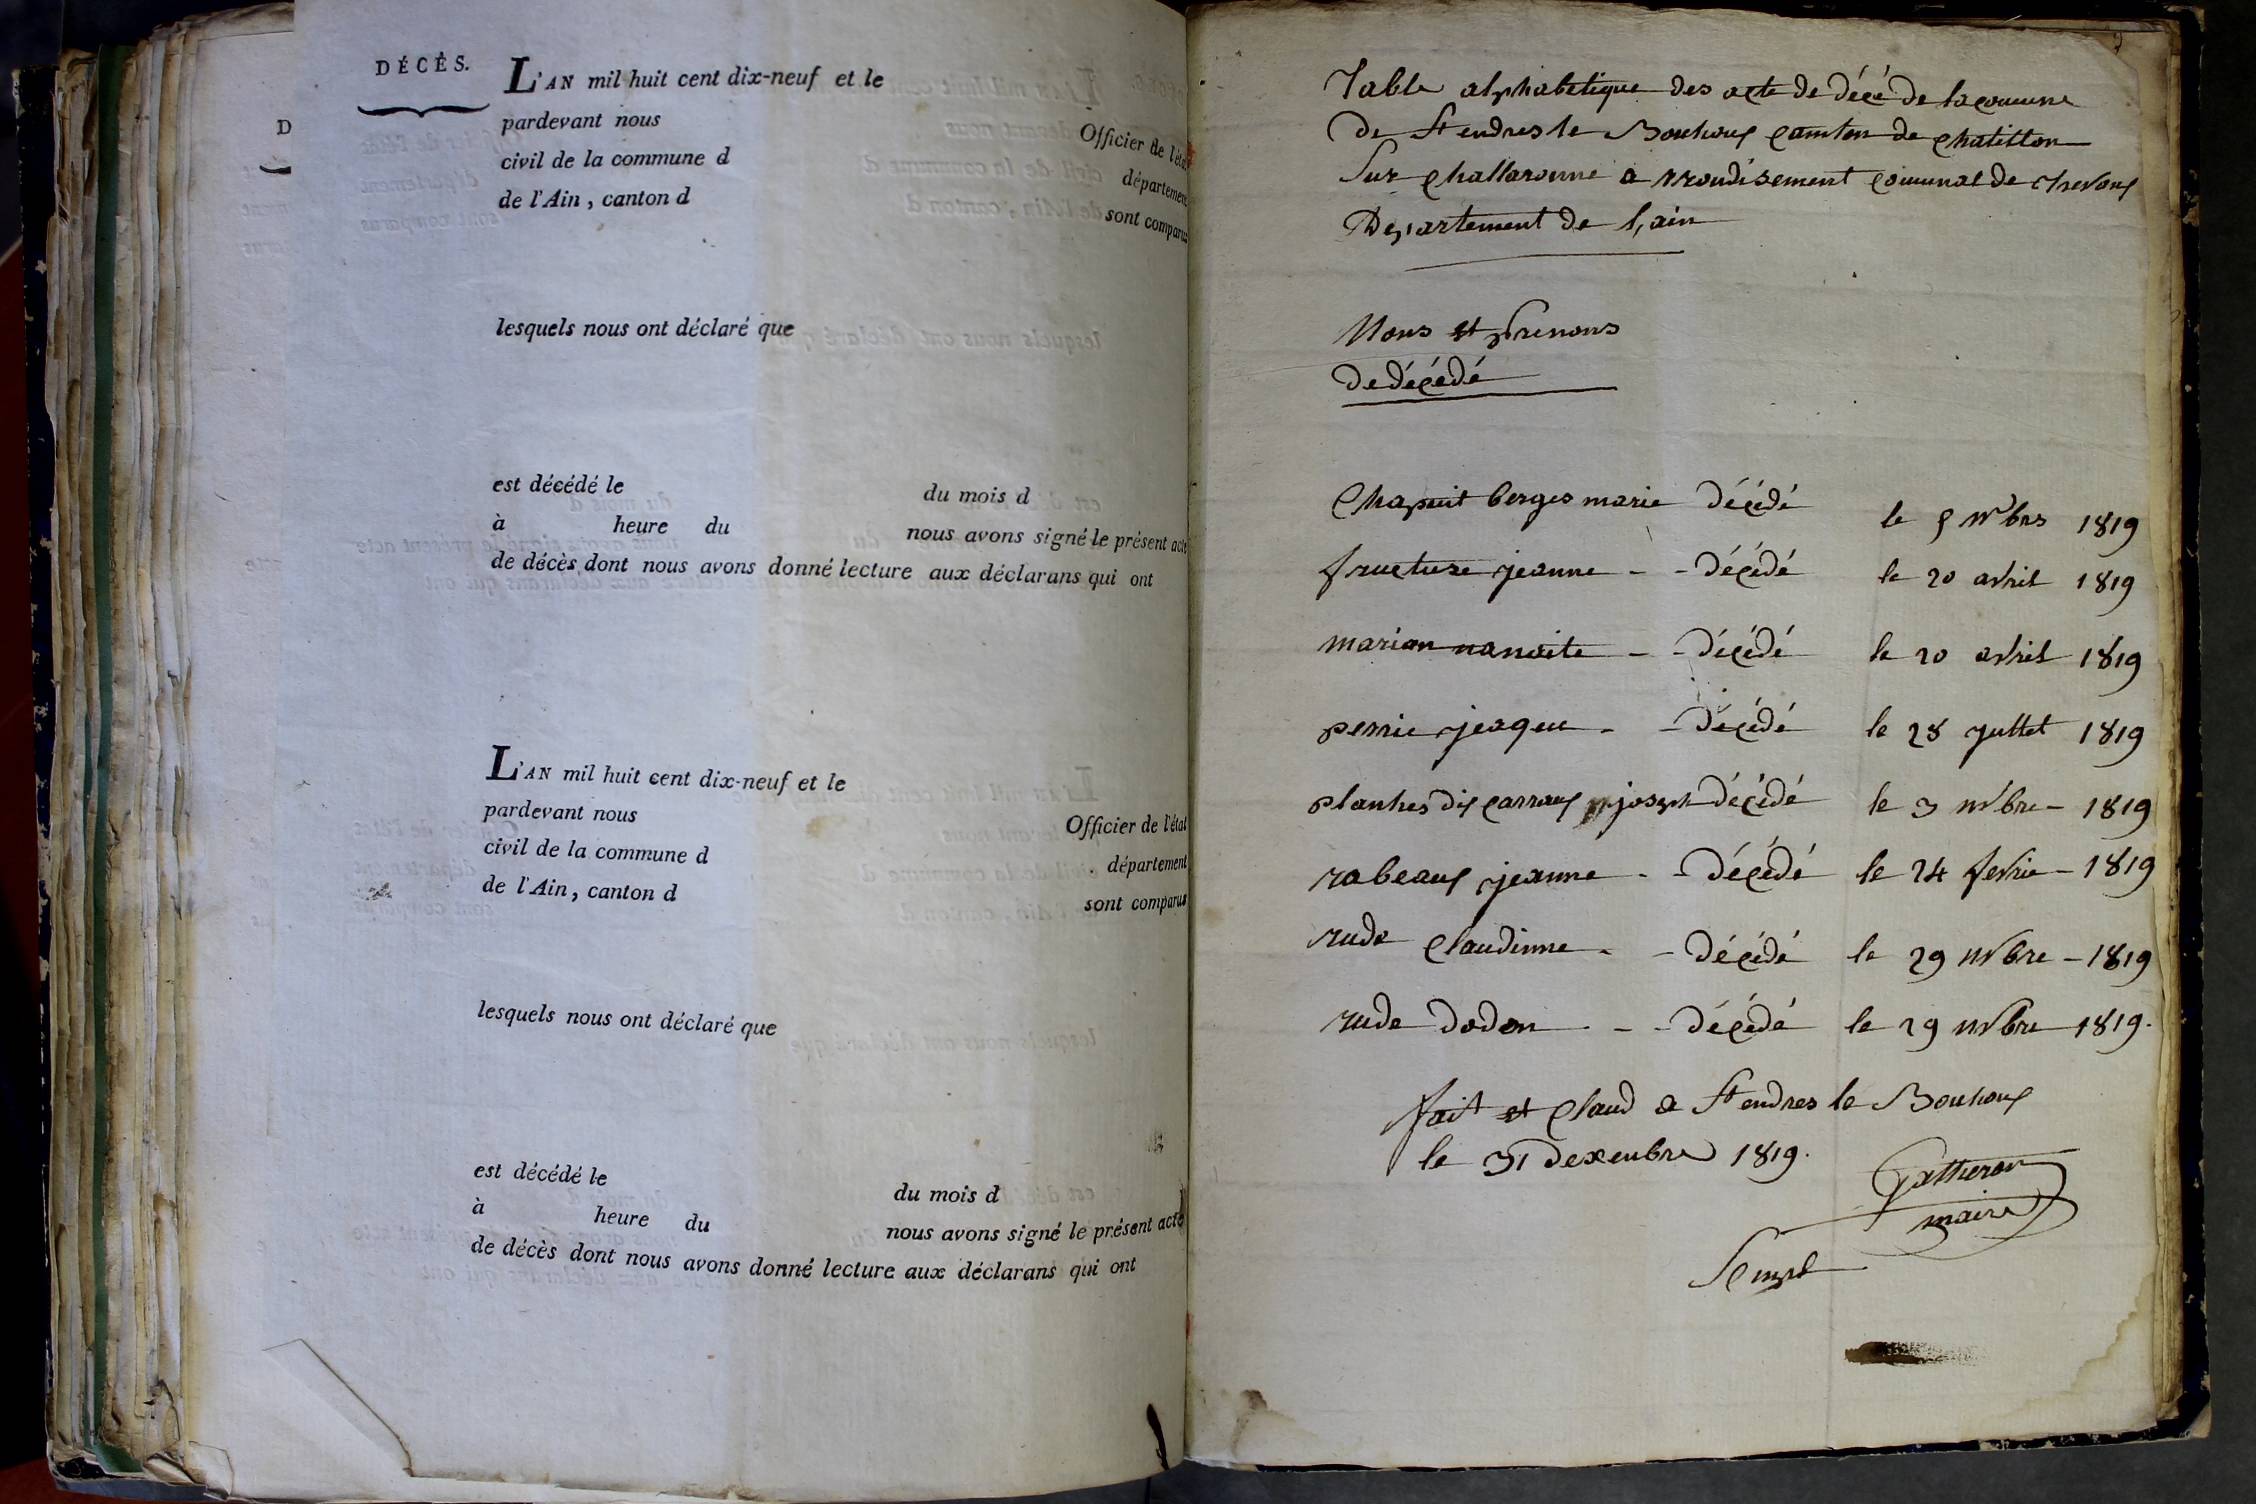 D
DÉCÈS.
L'AN mil huit cent dix-neuf et le
pardevant nous Officier de l'état
civil de la commune d département
de l'Ain, canton d sont comparus
lesquels nous ont déclaré que
est décédé le du mois d
à heure du nous avons signé le présent acte
de décès dont nous avons donné lecture aux déclarans qui ont
L'AN mil huit cent dix-neuf et le
pardevant nous Officier de l'état
civil de la commune d département
de l'Ain, canton d sont comparus
lesquels nous ont déclaré que
est décédé le du mois d
à heure du nous avons signé le présent acte
de décès dont nous avons donné lecture aux déclarans qui ont
Table alphabetique des acte de décé de la comune
de St endres le Bouhoux camton de chatillon
Sur challaronne a rroudisement comunal de trevoux
Departement de l,ain
Nons et prenons
de décédé
Chapuit berges marie décédé le 5 nvbrs 1819
fructuse jeanne - - décédé le 20 avril 1819
marion nanoite - - décédé le 20 avril 1819
perric jeaqeu - - décédé le 28 jullet 1819
joseph décédé le 3 nvbre - 1819
rabeaux jeanne - - décédé le 24 fevrie - 1819
rude claudinne - - décédé le 29 nvbre - 1819
rude dodon - - décédé le 29 nvbre 1819.
fait et claud a St endres le Bouhoux
le 31 dexenbre 1819.
Gatheron
maire